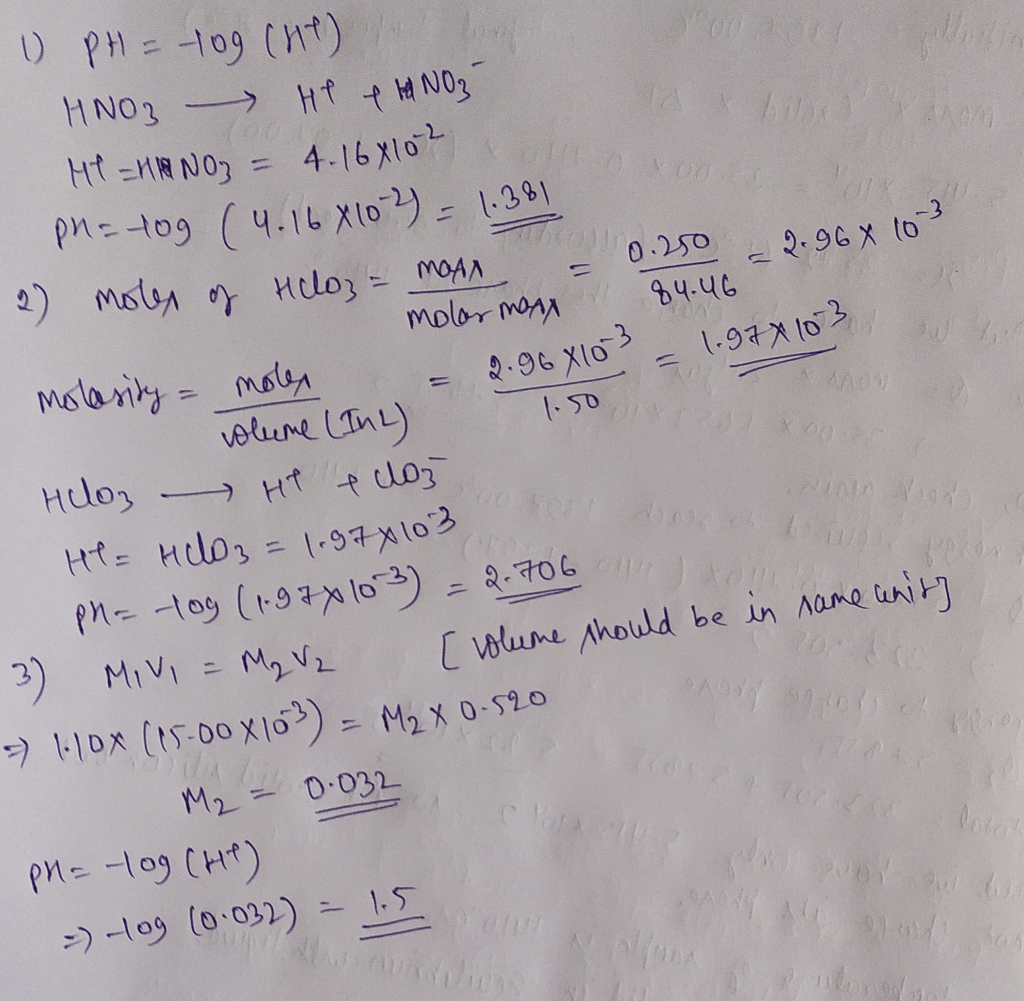 1) PH = -log (H+)
HNO3 → H+ + HNO3-
H+ = HNO3 = 4.16 X10-2
PH = -log (4.16 X10-2) = 1.381
2) moles of HClO3 = mass / molar mass = 0.250 / 84.46 = 2.96 X 10-3
molarity = moles / volume (In L) = 2.96 X10-3 / 1.50 = 1.97X10-3
HClO3 → H+ + ClO3-
H+ = HClO3 = 1.97X10-3
PH = -log (1.97X10-3) = 2.706
3) M1V1 = M2V2 [volume should be in same unit]
⇒ 1.10X (15.00X10-3) = M2 X 0.520
M2 = 0.032
PH = -log (H+)
⇒ -log (0.032) = 1.5